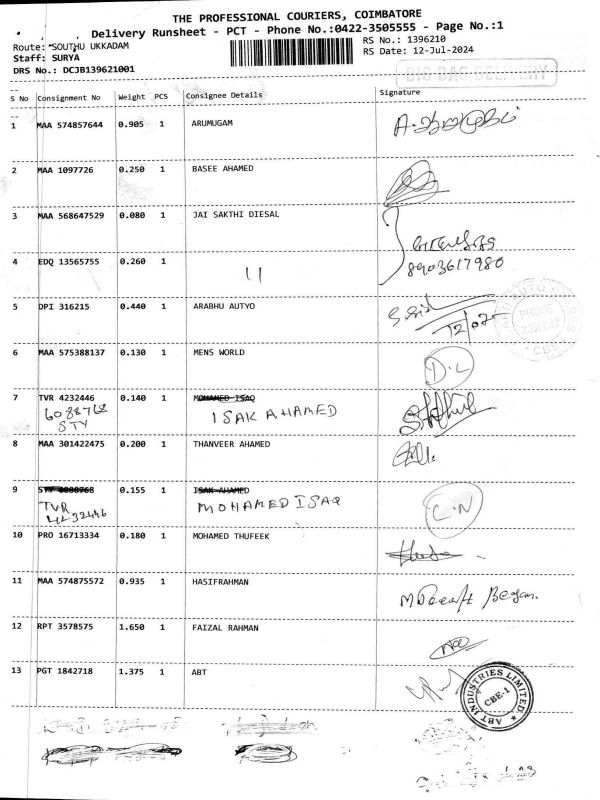 THE PROFESSIONAL COURIERS, COIMBATORE
Delivery Runsheet - PCT - Phone No.:0422-3505555 - Page No.:1
Route: SOUTHU UKKADAM
RS No.: 1396210
Staff: SURYA
RS Date: 12-Jul-2024
DRS No.: DCJB139621001
BIG BAG DELIVERY
S No Consignment No Weight PCS Consignee Details Signature
1 MAA 574857644 0.905 1 ARUMUGAM
2 MAA 1097726 0.250 1 BASEE AHAMED
3 MAA 568647529 0.080 1 JAI SAKTHI DIESAL
4 EDQ 13565755 0.260 1 11
8903617980
5 DPI 316215 0.440 1 ARABHU AUTYO
12/07
PHONE
CBE
6 MAA 575388137 0.130 1 MENS WORLD D.L
7 TVR 4232446 0.140 1 MOHAMED ISAQ
6088768 ISAK AHAMED
STY
8 MAA 301422475 0.200 1 THANVEER AHAMED
9 STY 6088768 0.155 1 ISAK AHAMED
TVR MOHAMED ISAQ C.N
4232446
10 PRO 16713334 0.180 1 MOHAMED THUFEEK
11 MAA 574875572 0.935 1 HASIFRAHMAN
Began.
12 RPT 3578575 1.650 1 FAIZAL RAHMAN
13 PGT 1842718 1.375 1 ABT
ABT INDUSTRIES LIMITED
CBE-1